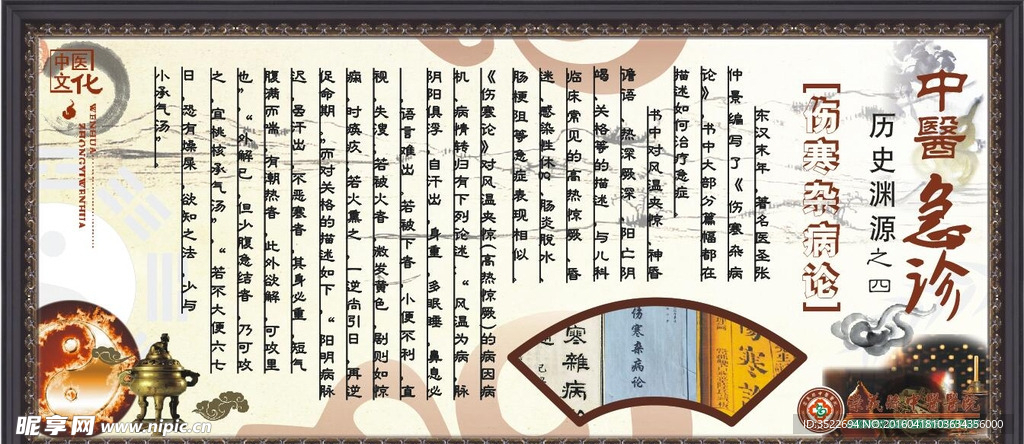 中醫急诊
历史渊源之四
[伤寒杂病论]
东汉末年，著名医圣张
仲景编写了《伤寒杂病
论》，书中大部分篇幅都在
描述如何治疗急症。
书中对风温夹惊，神昏
谵语，热深厥深，阳亡阴
竭，关格等的描述，与儿科
临床常见的高热惊厥，昏
迷，感染性休克，肠炎脱水
肠梗阻等急症表现相似。
《伤寒论》对风温夹惊(高热惊厥)的病因病
机，病情转归有下列论述，“风温为病，脉
阴阳俱浮，自汗出，身重，多眠睡，鼻息必
，语言难出，若被下者，小便不利，直
视，失溲，若被火者，微发黄色，剧则如惊
痫，时瘛疭，若火熏之，一逆尚引日，再逆
促命期。”而对关格的描述如下，“阳明病脉
迟，虽汗出，不恶寒者，其身必重，短气
腹满而喘，有潮热者，此外欲解，可攻里
也”，“外解已，但少腹急结者，乃可攻
之，宜桃核承气汤”，“若不大便六七
日，恐有燥屎，欲知之法，少与
小承气汤”。
中医
文化
WENHUA
ZHONGYIWENHUA
寒雜病
伤寒杂病论
昵享网 www.nipic.cn
ID:3522694 NO:20160418103634356000